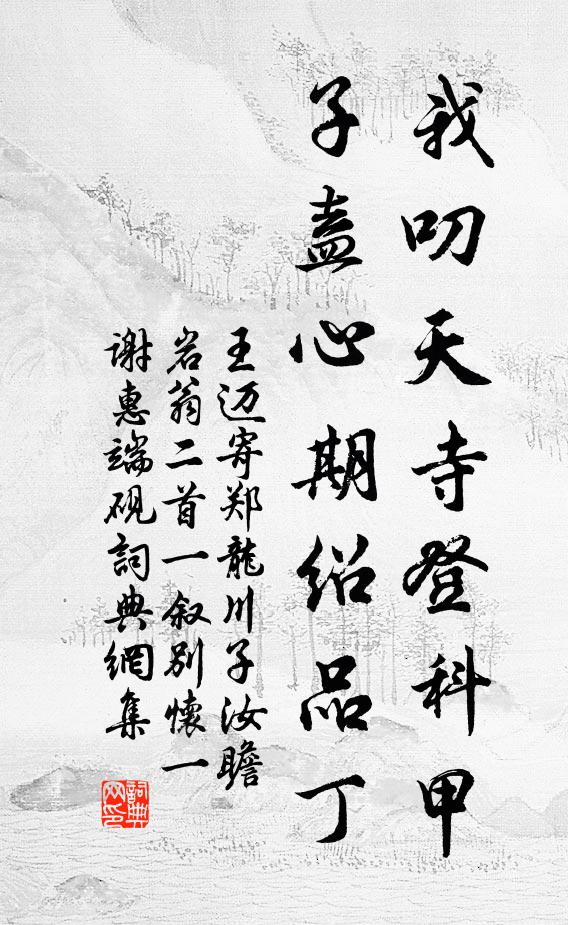 我叨天寺登科甲
子盍心期绍品丁
王迈寄郑龍川子汝瞻
岩翁二首一叙别懷一
谢惠端砚詞典網集
詞典网印